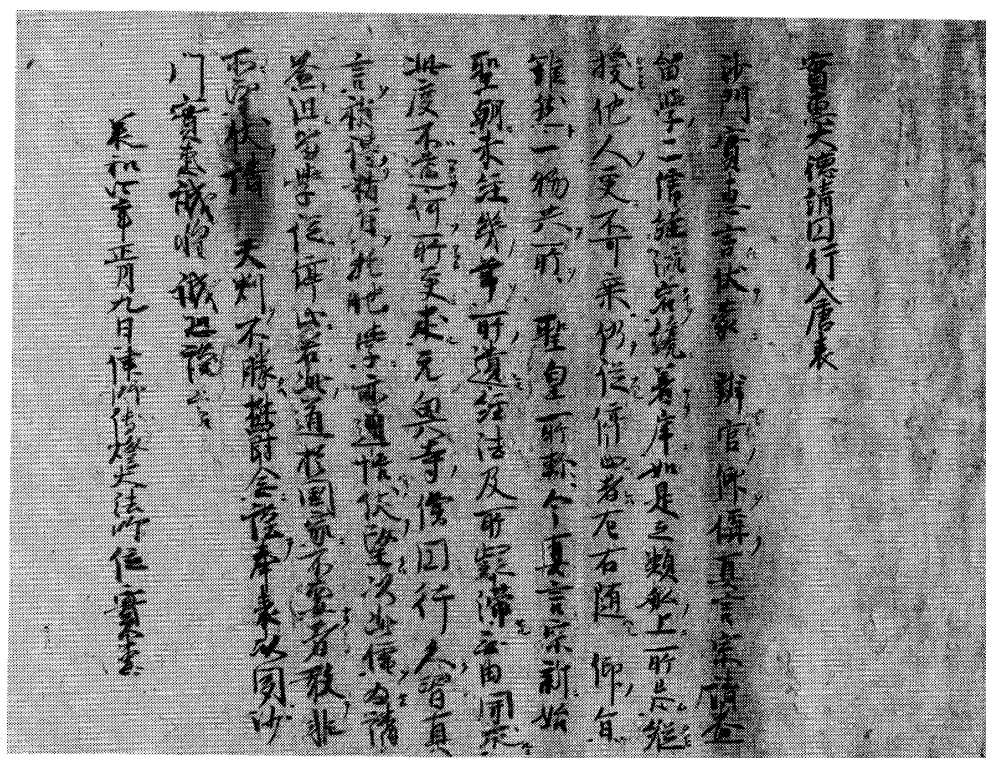 實惠大德請円行入唐表
沙門實惠言伏蒙 辨官仰偁真言宗請益
留學二僧經流宕繞著岸如是之類船上所忌縱
換他人更不可乘仍從停止者左右隨 仰旨
雖然一物失所 聖皇所軫今真言宗新始
聖朝未經幾年所遺經法及所疑滯無由開求
此度不遣何所更求元興寺僧円行 久習真
言稍得精旨 於他學亦通悟伏望以此僧為請
益但留學從停止若此道於國家不要者敢非
所望伏請 天判不勝欝念謹奉表以聞沙
門實惠誠惶誠恐謹言
承和四年正月九日律師傳燈大法師位實惠